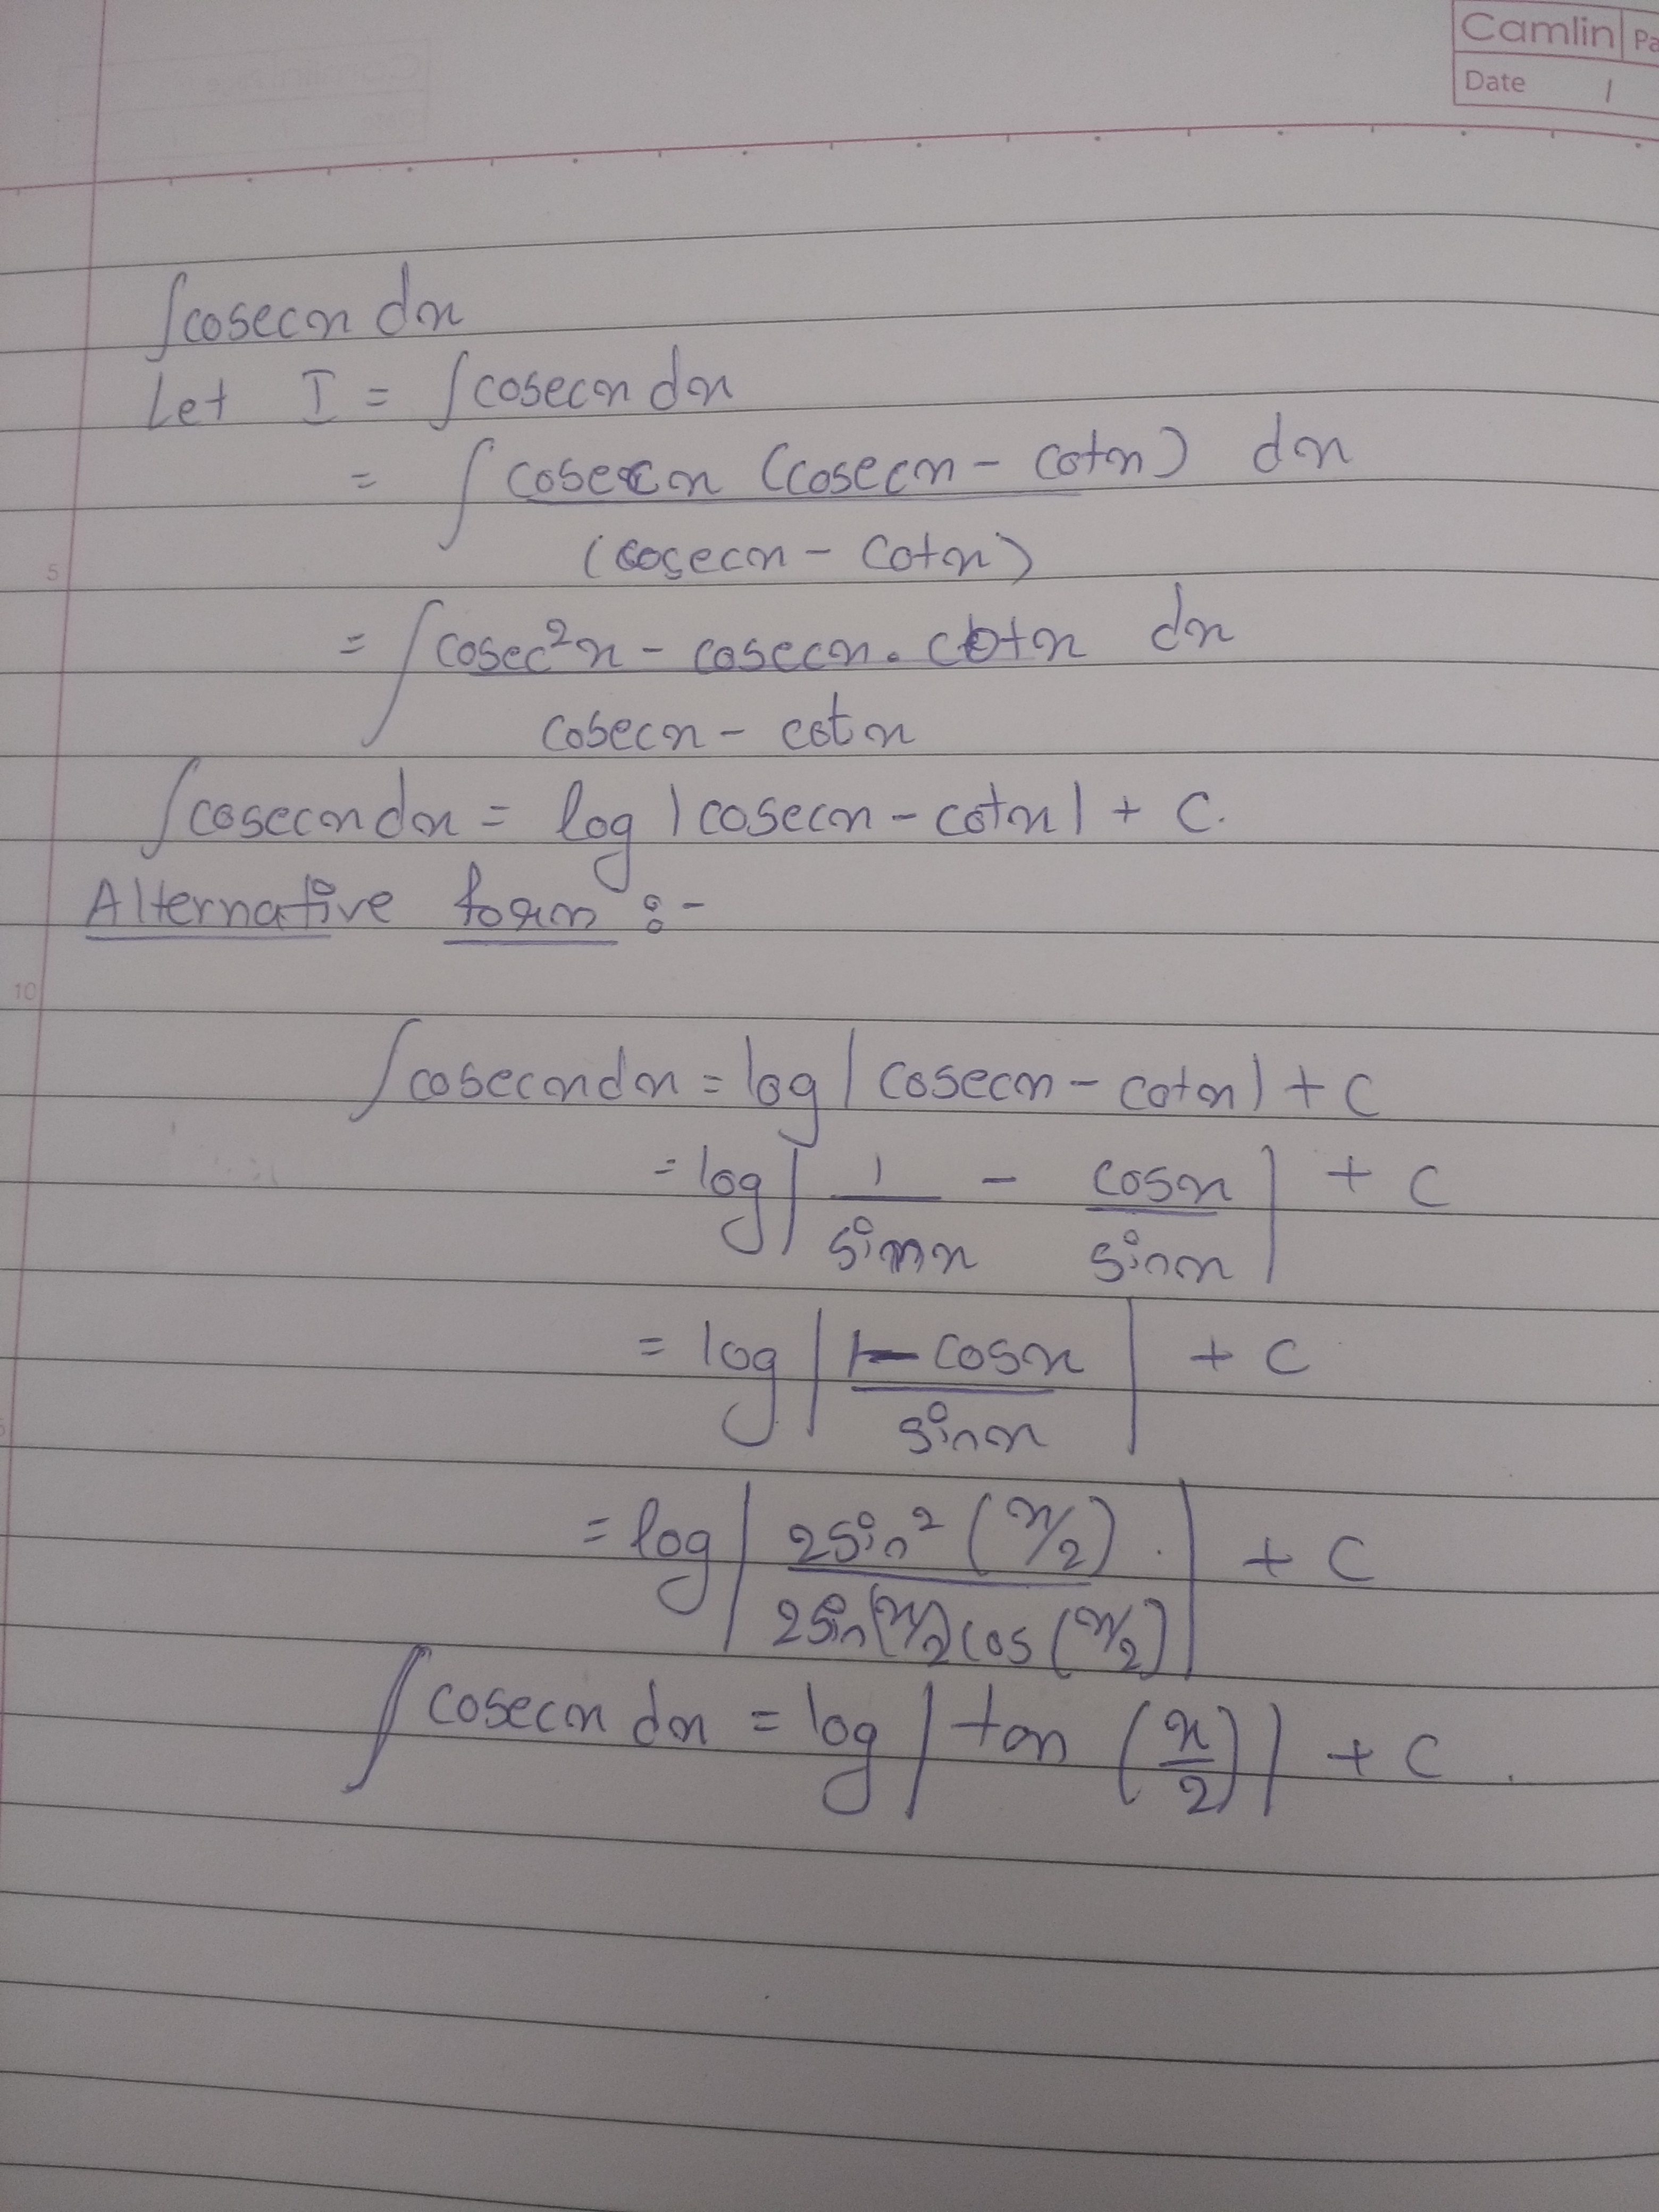 Camlin Pa
Date /
∫cosecx dx
Let I = ∫cosecx dx
= ∫ cosecx (cosecx - cotx) dx
(cosecx - cotx)
5
= ∫ cosec²x - cosecx . cotx dx
cosecx - cotx
∫cosecx dx = log |cosecx - cotx| + C.
Alternative form :-
10
∫cosecx dx = log | cosecx - cotx | + C
= log | 1 - cosx | + C
sinx sinx
= log | 1 - cosx | + C
sinx
= log | 2sin² (x/2) . | + C
2sin(x/2) cos (x/2)
∫ cosecx dx = log | tan (x/2) | + C .